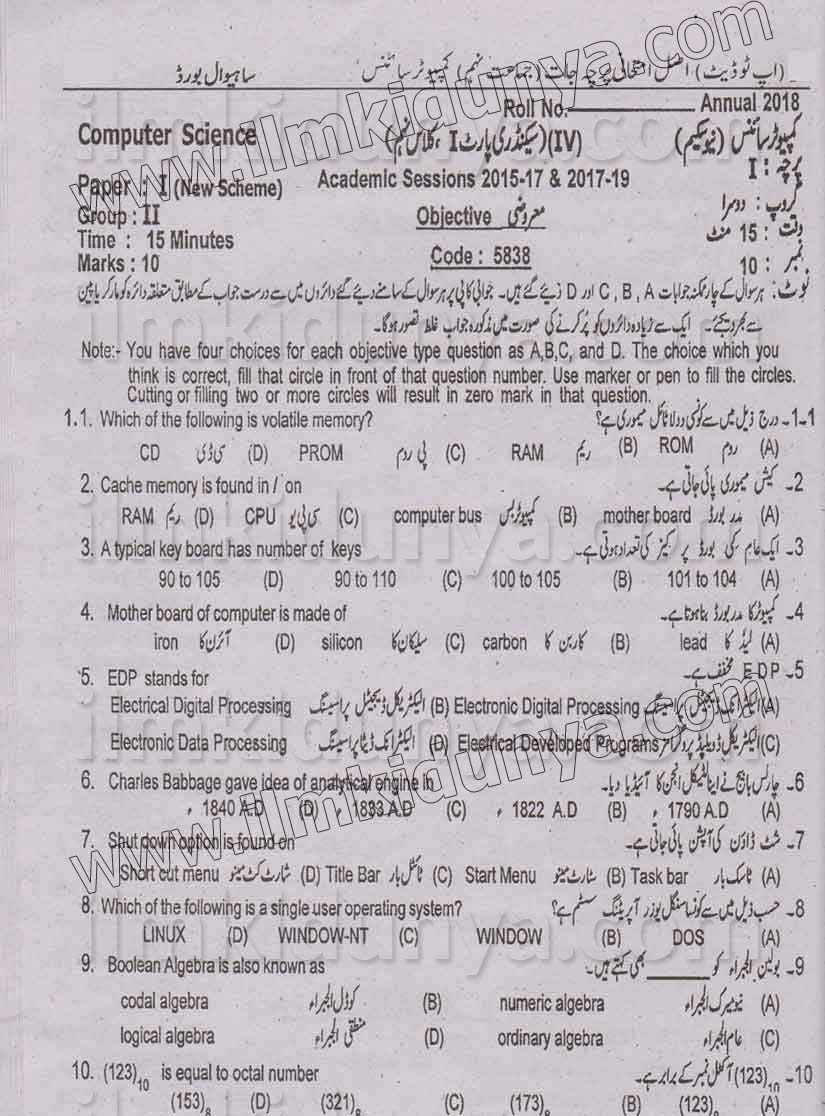 (اپ ٹو ڈیٹ) اصل امتحانی پرچہ جات (جماعت نہم) کمپیوٹر سائنس ساہیوال بورڈ
Roll No. Annual 2018
Computer Science (IV) (سیکنڈری پارٹ I ، کلاس نہم) کمپیوٹر سائنس (نیو سکیم)
Paper : I (New Scheme) Academic Sessions 2015-17 & 2017-19 پرچہ : I
Group : II Objective معروضی گروپ : دوسرا
Time : 15 Minutes وقت : 15 منٹ
Code : 5838
Marks : 10 نمبر : 10
نوٹ : ہر سوال کے چار ممکنہ جوابات C , B , A اور D دیئے گئے ہیں۔ جوابی کاپی پر ہر سوال کے سامنے دیئے گئے دائروں میں سے درست جواب کے مطابق متعلقہ دائرہ کو مارکر یا پین
سے بھر دیجئے۔ ایک سے زیادہ دائروں کو پُر کرنے کی صورت میں مذکورہ جواب غلط تصور ہوگا۔
Note:- You have four choices for each objective type question as A,B,C, and D. The choice which you
think is correct, fill that circle in front of that question number. Use marker or pen to fill the circles.
Cutting or filling two or more circles will result in zero mark in that question.
1.1. Which of the following is volatile memory? 1-1۔ درج ذیل میں سے کونسی وولاٹائل میموری ہے؟
CD سی ڈی (D) PROM پی روم (C) RAM ریم (B) ROM روم (A)
2. Cache memory is found in / on 2۔ کیش میموری پائی جاتی ہے۔
RAM ریم (D) CPU سی پی یو (C) computer bus کمپیوٹر بس (B) mother board مدر بورڈ (A)
3. A typical key board has number of keys 3۔ ایک عام کی بورڈ پر کیز کی تعداد ہوتی ہے۔
90 to 105 (D) 90 to 110 (C) 100 to 105 (B) 101 to 104 (A)
4. Mother board of computer is made of 4۔ کمپیوٹر کا مدر بورڈ بنا ہوتا ہے۔
iron آئرن کا (D) silicon سیلیکان کا (C) carbon کاربن کا (B) lead لیڈ کا (A)
5. EDP stands for 5۔ EDP مخفف ہے۔
Electrical Digital Processing الیکٹریکل ڈیجیٹل پراسیسنگ (B) Electronic Digital Processing الیکٹرانک ڈیجیٹل پراسیسنگ (A)
Electronic Data Processing الیکٹرانک ڈیٹا پراسیسنگ (D) Electrical Developed Programs الیکٹریکل ڈویلپڈ پروگرامز (C)
6. Charles Babbage gave idea of analytical engine in 6۔ چارلس بابیج نے اینالٹیکل انجن کا آئیڈیا دیا۔
، 1840 A.D (D) ، 1833 A.D (C) ، 1822 A.D (B) ، 1790 A.D (A)
7. Shut down option is found on 7۔ شٹ ڈاؤن کی آپشن پائی جاتی ہے۔
Short cut menu شارٹ کٹ مینو (D) Title Bar ٹائٹل بار (C) Start Menu سٹارٹ مینو (B) Task bar ٹاسک بار (A)
8. Which of the following is a single user operating system? 8۔ حسب ذیل میں سے کونسا سنگل یوزر آپریٹنگ سسٹم ہے؟
LINUX (D) WINDOW-NT (C) WINDOW (B) DOS (A)
9. Boolean Algebra is also known as 9۔ بولین الجبراء کو ______ بھی کہتے ہیں۔
codal algebra کوڈل الجبراء (B) numeric algebra نیومیرک الجبراء (A)
logical algebra منطقی الجبراء (D) ordinary algebra عام الجبراء (C)
10. (123)10 is equal to octal number 10۔ (123)10 آکٹل نمبر کے برابر ہے۔
(153)8 (D) (321)8 (C) (173)8 (B) (123)8 (A)
www.ilmkidunya.com
www.ilmkidunya.com
ilmkidunya.com
ilmkidunya.com
ilmkidunya.com
ilmkidunya.com
ilmkidunya.com